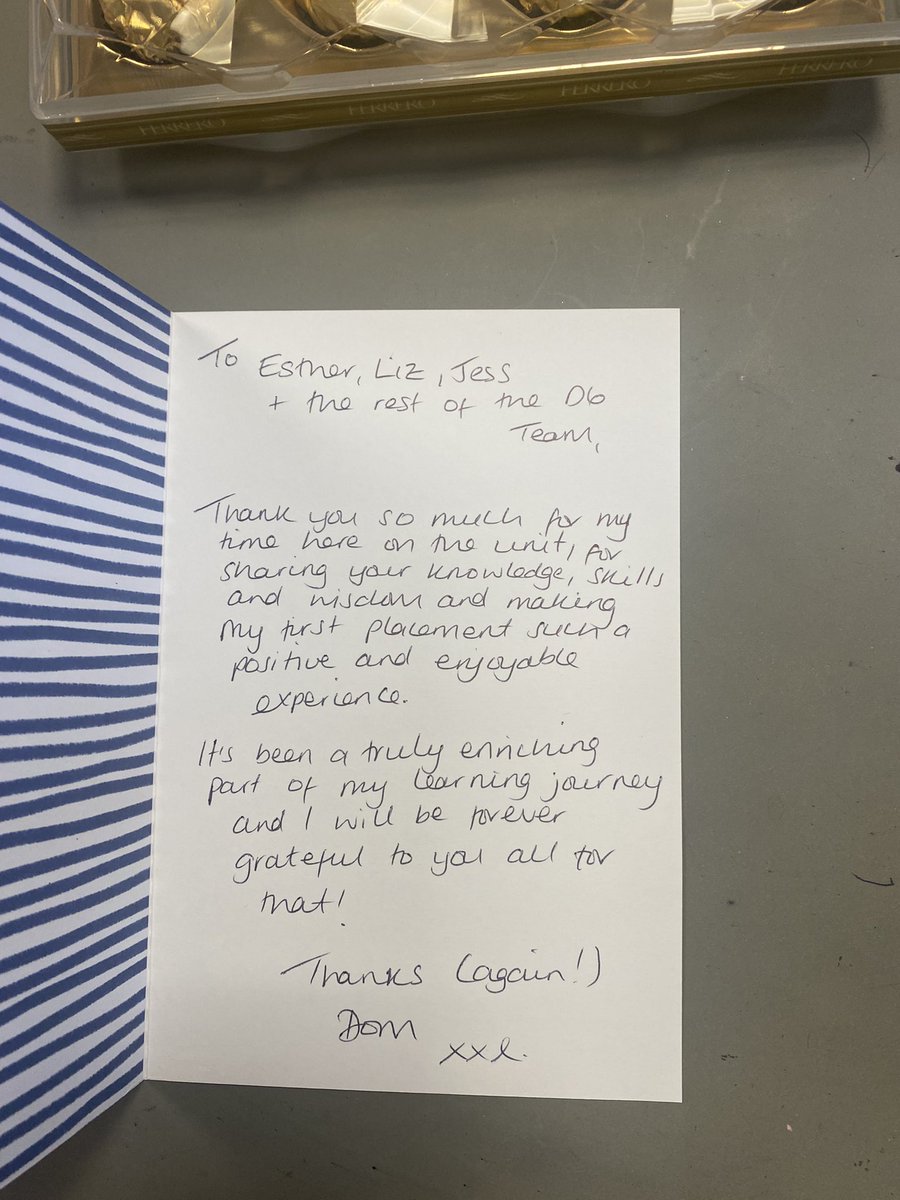 FERRERO FERRERO FERRERO FERRERO
To Esther, Liz, Jess
+ the rest of the D6
Team,
Thank you so much for my
time here on the unit, for
sharing your knowledge, skills
and wisdom and making
my first placement such a
positive and enjoyable
experience.
It's been a truly enriching
part of my learning journey
and I will be forever
grateful to you all for
that!
Thanks (again!)
Dom
xxx.